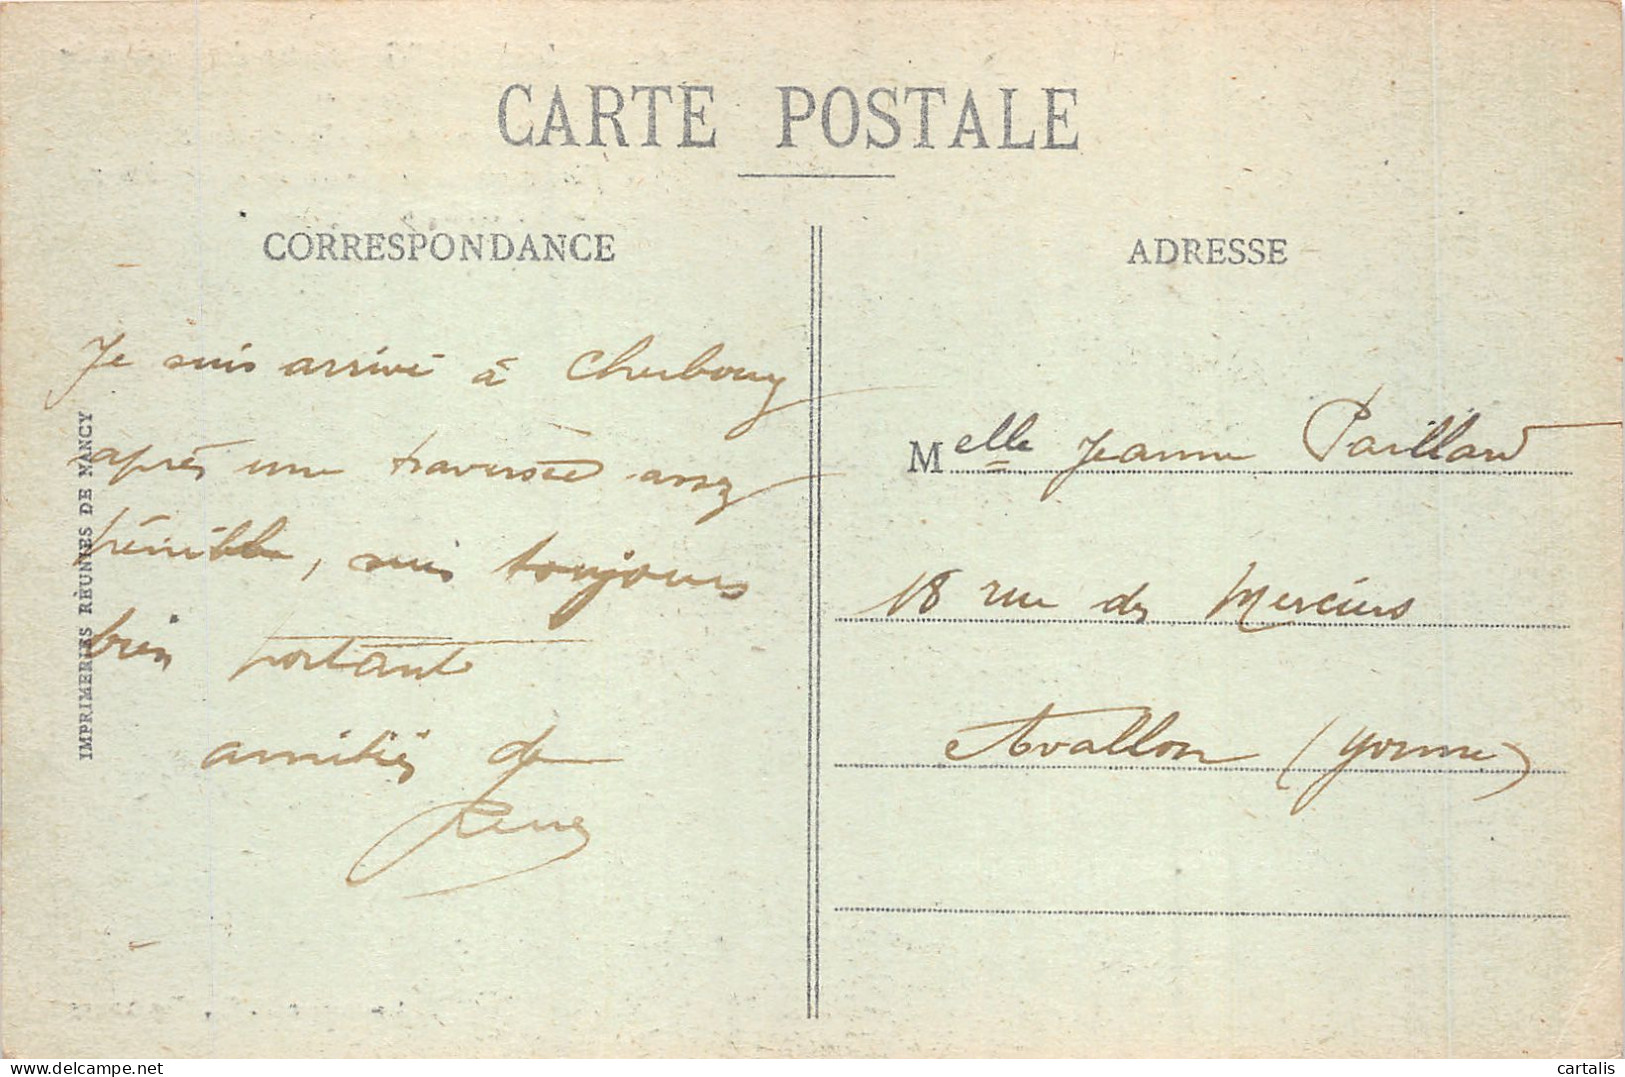 CARTE POSTALE
CORRESPONDANCE
Je suis arrivé à Cherbourg
après une traversée assez
pénible, suis toujours
bien portant
amitiés de
René
IMPRIMERIES RÉUNIES DE NANCY
ADRESSE
Melle Jeanne Paillard
18 rue des Merciers
Avallon (Yonne)
delcampe.net
cartalis